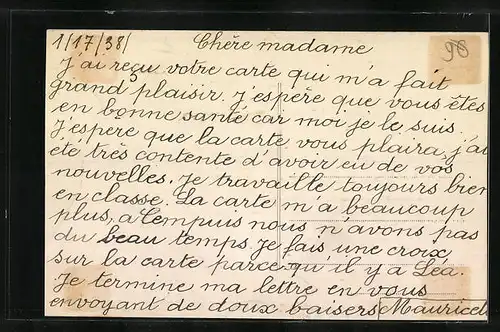 1/17/38/
Chère madame
98
J'ai reçu votre carte qui m'a fait
grand plaisir. J'espère que vous êtes
en bonne santé car moi je le suis.
J'espère que la carte vous plaira, j'ai
été très contente d'avoir eu de vos
nouvelles. Je travaille toujours bien
en classe. La carte m'a beaucoup
plus, a Tempuis nous n'avons pas
du beau temps. Je fais une croix
sur la carte parce qu'il y a Léa.
Je termine ma lettre en vous
envoyant de doux baisers Mauricet